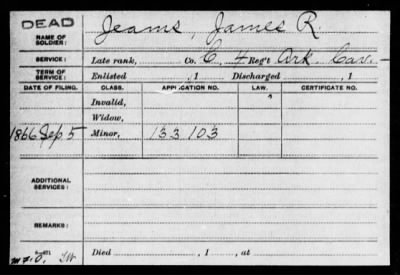 DEAD
NAME OF SOLDIER: Jeams, James R
SERVICE: Late rank, Co. C, 4 Reg't Ark. Cav.
TERM OF SERVICE: Enlisted , 1 Discharged , 1
DATE OF FILING. CLASS. APPLICATION NO. LAW. CERTIFICATE NO.
Invalid,
Widow,
1866 Sep 5 Minor, 133 103
ADDITIONAL SERVICES:
REMARKS:
Died , 1 , at